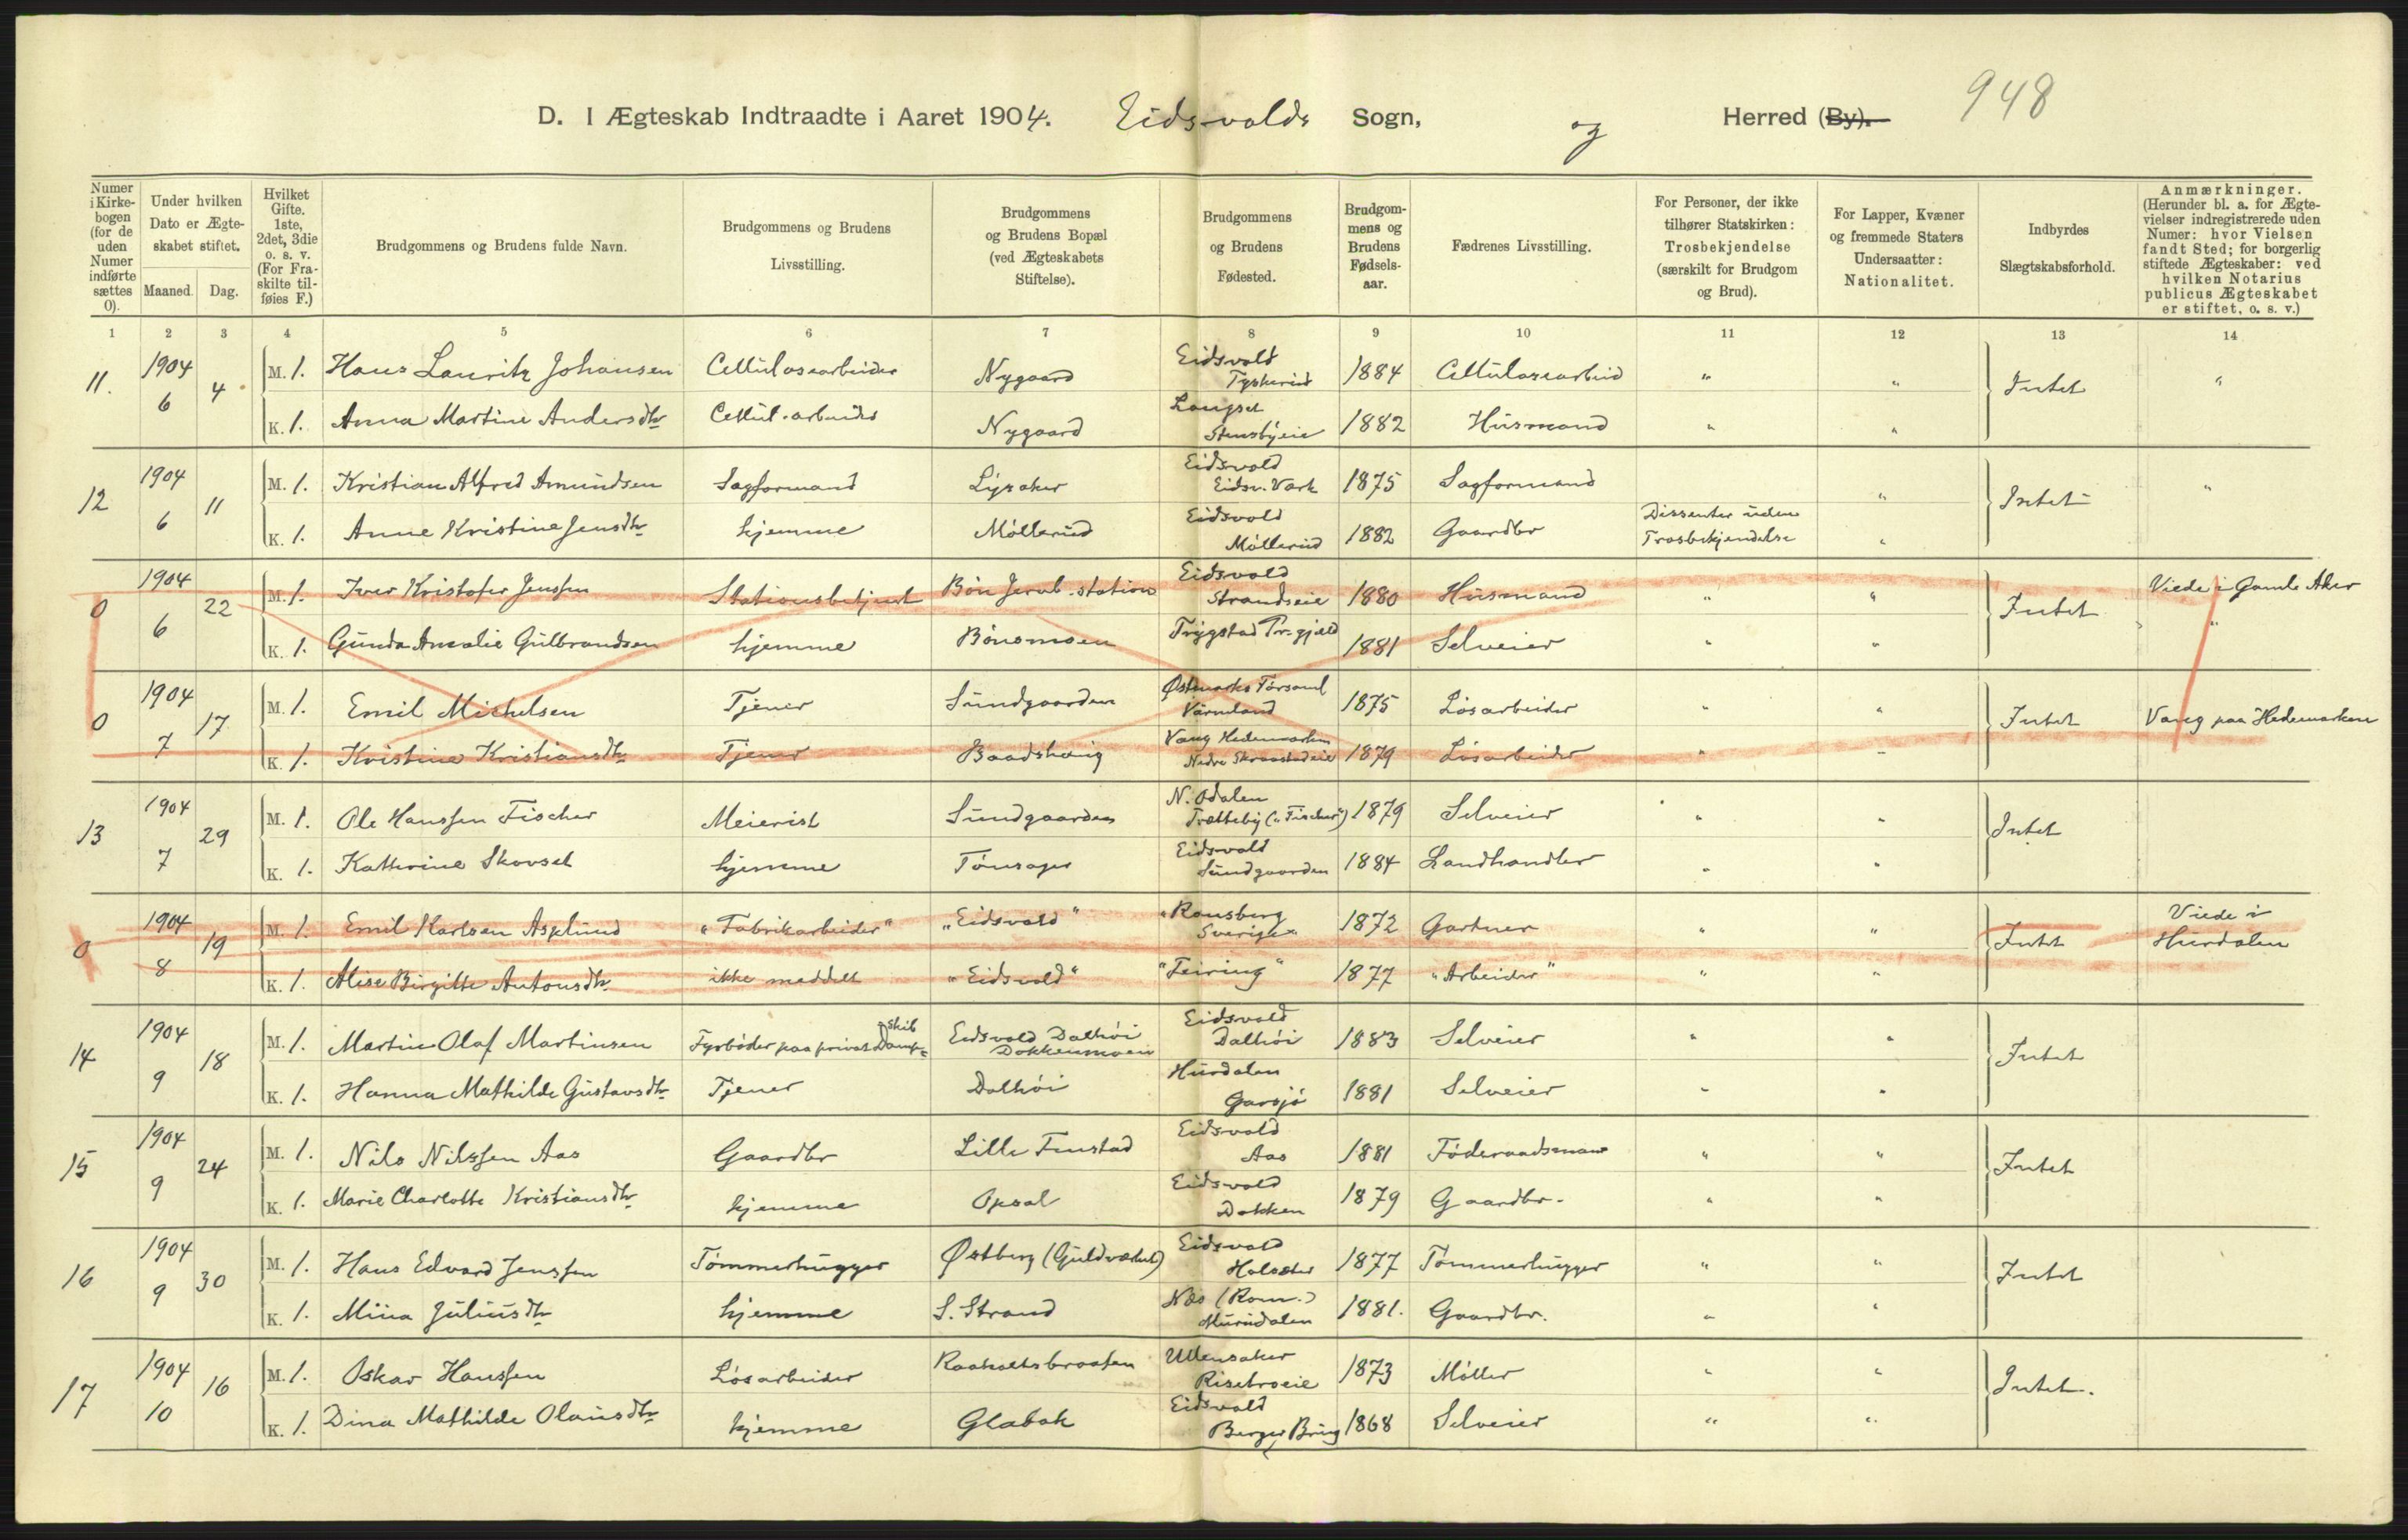 948
D. I Ægteskab Indtraadte i Aaret 1904. Eidsvolds Sogn, og Herred (By).
Numer i Kirkebogen (for de uden Numer indførte sættes 0).
Under hvilken Dato er Ægteskabet stiftet.
Maaned. Dag.
Hvilket Gifte. 1ste, 2det, 3die o. s. v. (For Fraskilte tilføies F.)
Brudgommens og Brudens fulde Navn.
Brudgommens og Brudens Livsstilling.
Brudgommens og Brudens Bopæl (ved Ægteskabets Stiftelse).
Brudgommens og Brudens Fødested.
Brudgommens og Brudens Fødselsaar.
Fædrenes Livsstilling.
For Personer, der ikke tilhører Statskirken: Trosbekjendelse (særskilt for Brudgom og Brud).
For Lapper, Kvæner og fremmede Staters Undersaatter: Nationalitet.
Indbyrdes Slægtskabsforhold.
Anmærkninger. (Herunder bl. a. for Ægtevielser indregistrerede uden Numer: hvor Vielsen fandt Sted; for borgerlig stiftede Ægteskaber: ved hvilken Notarius publicus Ægteskabet er stiftet, o. s. v.)
1 2 3 4 5 6 7 8 9 10 11 12 13 14
11. 1904 6 4 M. 1. Hans Lauritz Johansen Cellulosearbeider Nygaard Eidsvold Tyskerud 1884 Cellulosearbeid " " Intet "
K. 1. Anna Martine Andersdtr Cellul. arbeider Nygaard Langset Stensbyeie 1882 Husmand " "
12 1904 6 11 M. 1. Kristian Alfred Amundsen Sagformand Lysaker Eidsvold Eidsv. Værk 1875 Sagformand " Intet "
K. 1. Anne Kristine Jensdtr hjemme Møllerud Eidsvold Møllerud 1882 Gaardbr Dissenter uden Trosbekjendelse "
0 1904 6 22 M. 1. Iver Kristofer Jenssen Stationsbetjent Bøn Jernb. station Eidsvold Strandseie 1880 Husmand " " Intet Viede i Gamle Aker
K. 1. Gunda Amalie Gulbrandsen hjemme Bønsmoen Trygstad Pr.gjæld 1881 Selveier " " "
0 1904 7 17 M. 1. Emil Michelsen Tjener Sundgaarden Østmarks Forsaml Värmland 1875 Løsarbeider " " Intet Vang paa Hedemarken
K. 1. Kristine Kristiansdtr Tjener Baadshaug Vang Hedemarken Nedre Skraastadeie 1879 Løsarbeider " "
13 1904 7 29 M. 1. Ole Hanssen Fischer Meierist Sundgaarden N. Odalen Trætteby ("Fischer") 1879 Selveier " " Intet
K. 1. Kathrine Skovset hjemme Tønsager Eidsvold Sundgaarden 1884 Landhandler " "
0 1904 8 19 M. 1. Emil Karlsen Asplund "Fabrikarbeider" "Eidsvold" "Ransberg Sverige" 1872 Gartner " " Intet Viede i Hurdalen
K. 1. Alise Birgitte Antonsdtr ikke meddelt "Eidsvold" "Feiring" 1877 "Arbeider" " "
14 1904 9 18 M. 1. Martin Olaf Martinsen Fyrbøder paa privat Dampskib Eidsvold Dalhøi Dokkenmoen Eidsvold Dalhøi 1883 Selveier " " Intet
K. 1. Hanna Mathilde Gustavsdtr Tjener Dalhøi Hurdalen Garsjø 1881 Selveier " "
15 1904 9 24 M. 1. Nils Nilssen Aas Gaardbr Lille Finstad Eidsvold Aas 1881 Føderaadsmand " " Intet
K. 1. Marie Charlotte Kristiansdtr hjemme Opsal Eidsvold Dokken 1879 Gaardbr. " "
16 1904 9 30 M. 1. Hans Edvard Jenssen Tømmerhugger Østberg (Guldværket) Eidsvold Holseter 1877 Tømmerhugger " " Intet
K. 1. Mina Juliusdtr hjemme S. Strand Næs (Rom.) Murudalen 1881. Gaardbr. " "
17 1904 10 16 M. 1. Oskar Hanssen Løsarbeider Raaholtsbraaten Ullensaker Risebroeie 1873 Møller " " Intet.
K. 1. Dina Mathilde Olausdtr hjemme Glabak Eidsvold Berger Bring 1868 Selveier " "